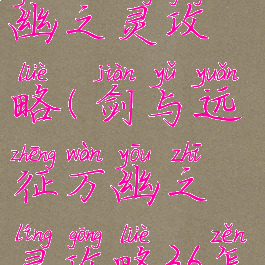 幽之灵攻
lüè jiàn yǔ yuǎn
略(剑与远
zhēng wàn yōu zhī
征万幽之
líng gōng lüè zěn
灵攻略36怎